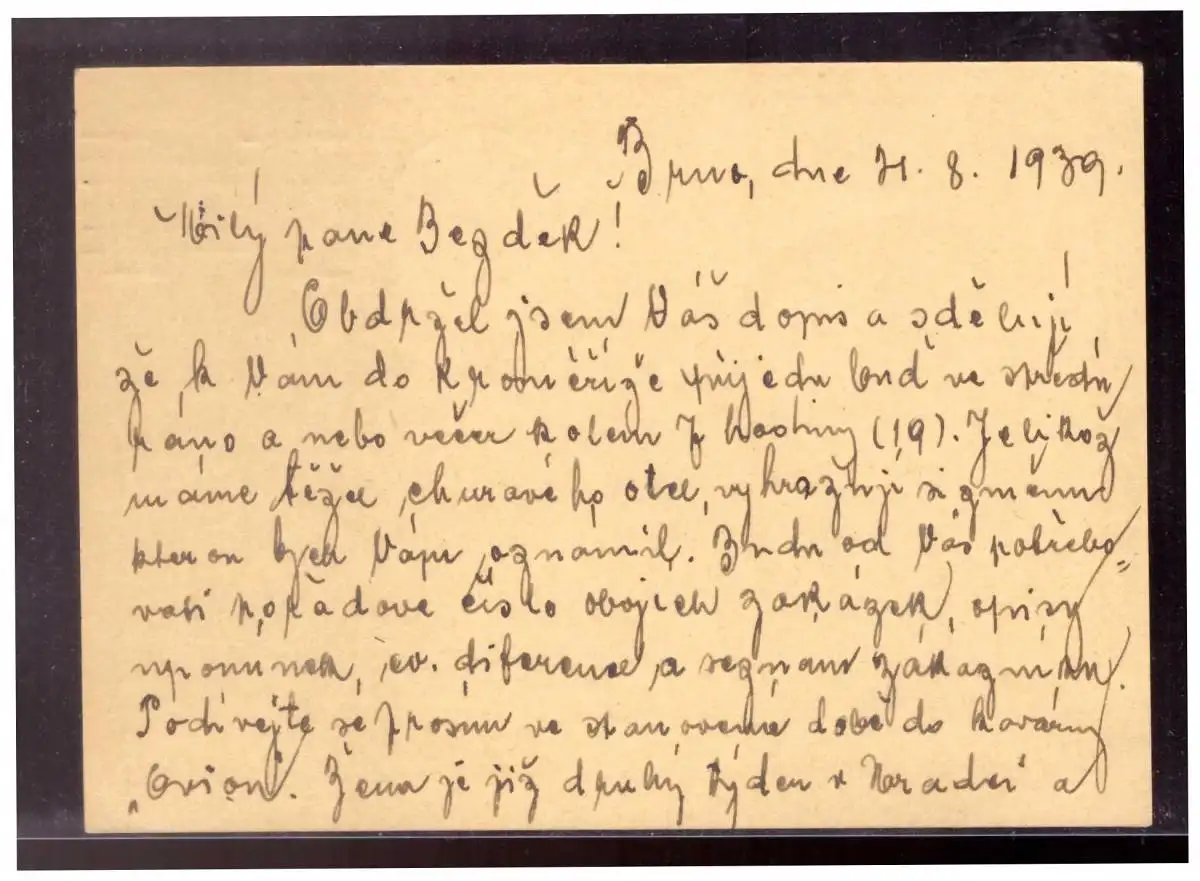 Brno, dne 21. 8. 1939.
Milý pane Bezděk!
Obdržel jsem Váš dopis a sděluji
že k Vám do Kroměříže přijedu buď ve středu
ráno a nebo večer kolem 7 hodiny (19). Jelikož
máme těžce churavého otce, vyhražuji si změnu
kterou bych Vám oznámil. Budu od Vás potřebo=
vati pořádové číslo obojich zakázek, opisy
upomínek, ev. diference a seznam zákazníků.
Podívejte se prosím ve stanovené době do kavárny
"Orion". Žena je již druhý týden v Hradci a